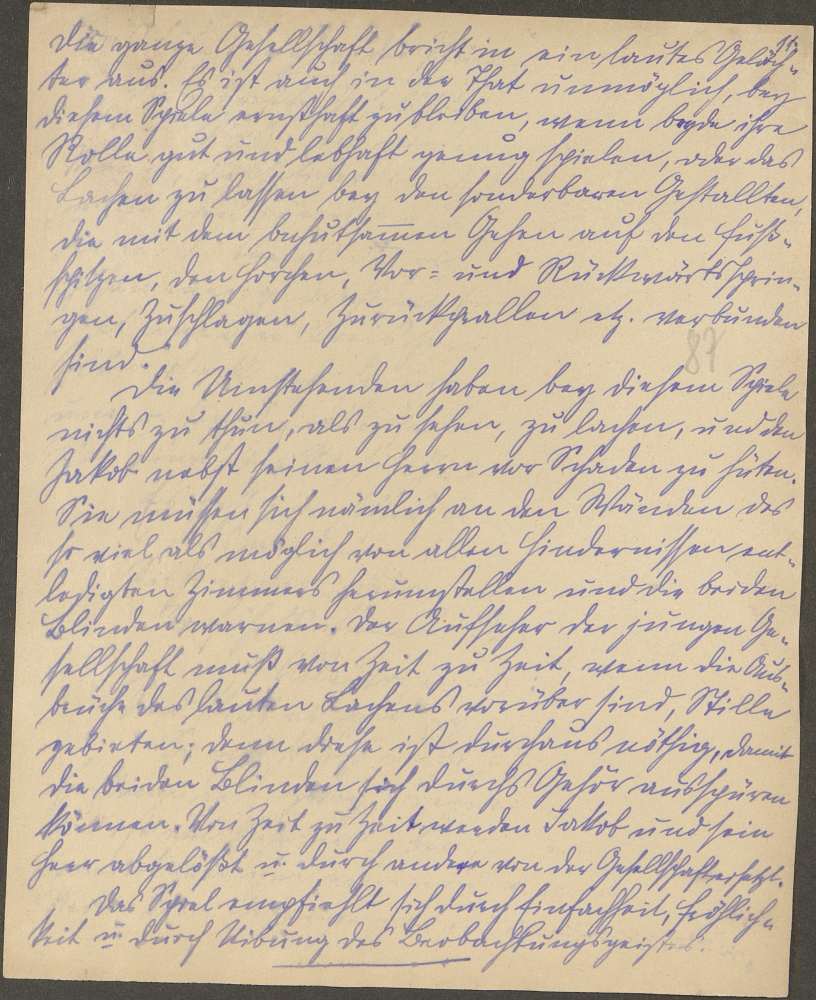 11.
die ganze Gesellschaft bricht in ein lautes Geläch-
ter aus. Es ist auch in der That unmöglich, bey
diesem Spiele ernsthaft zu bleiben, wenn beyde ihre
Rolle gut und lebhaft genug spielen, oder das
Lachen zu lassen bey den sonderbaren Gestallten,
die mit dem behutsam̅en Gehen auf den Fuß-
spitzen, den Horchen, Vor= und Rückwärtssprin-
gen, Zuschlagen, Zurückprallen etz. verbunden
sind.
89
Die Umstehenden haben bey diesem Spiele
nichts zu thun, als zu sehen, zu lachen, und den
Jakob nebst seinen Herrn vor Schaden zu hüten.
Sie müssen sich nämlich an den Wänden des
so viel als möglich von allen Hindernissen ent-
ledigten Zimmers herumstellen und die beiden
Blinden warnen. Der Aufseher der jungen Ge-
sellschaft muß von Zeit zu Zeit, wenn die Aus-
brüche des lauten Lachens vorüber sind, Stille
gebieten; denn diese ist durchaus nöthig, damit
die beiden Blinden sich durchs Gehör ausspüren
können. Von Zeit zu Zeit werden Jakob und sein
Herr abgelößt u. durch andere von der Gesellschaft ersetzt.
Das Spiel empfiehlt sich durch Einfachheit, Fröhlich-
keit u. durch Uibung des Beobachtungsgeistes.